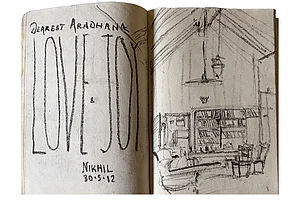 DEAREST ARADHANA
LOVE & JOY
NIKHIL
30·5·12